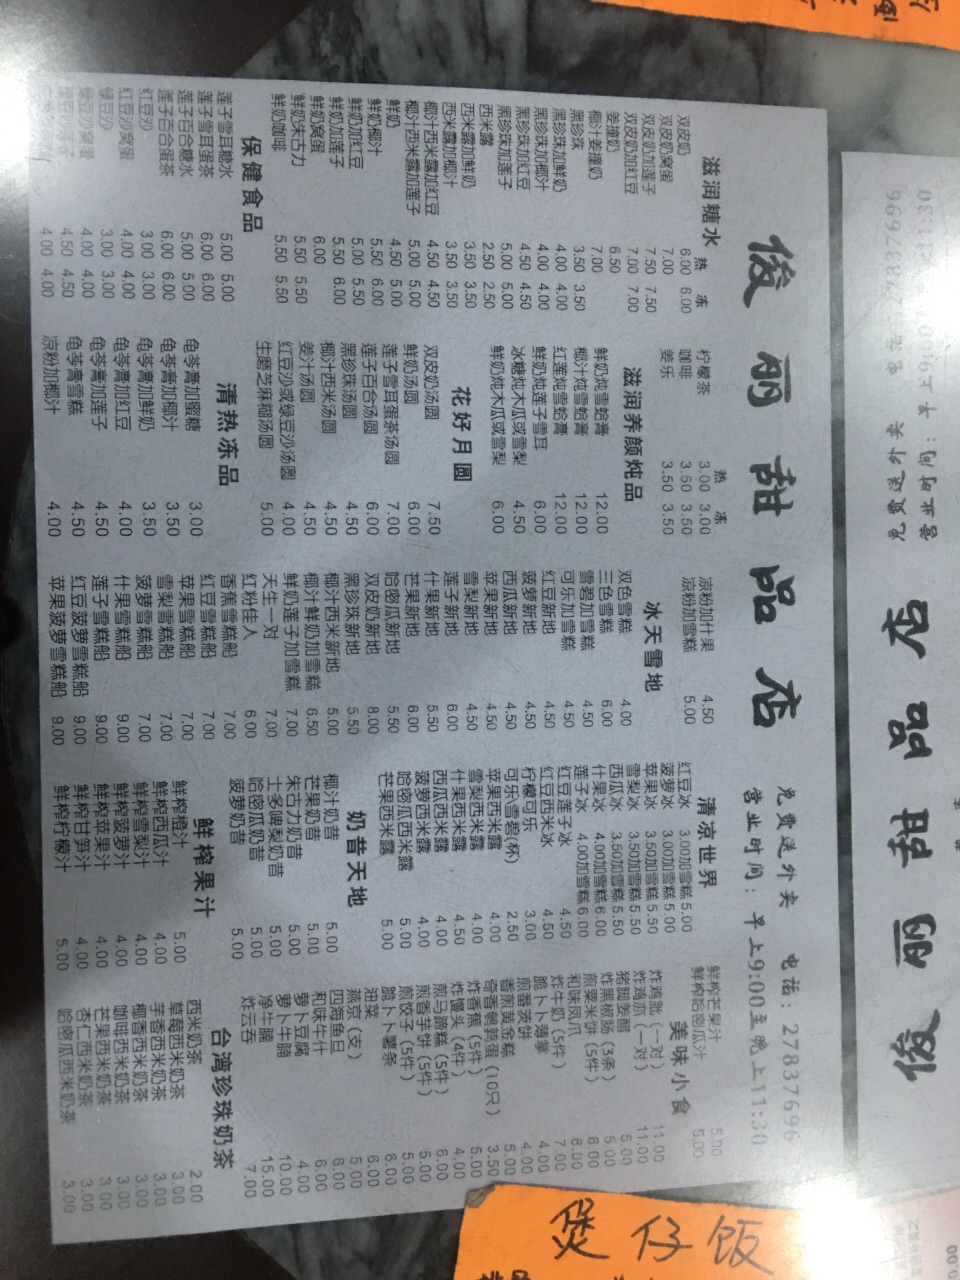 俊丽甜品店
免费送外卖 电话：27837696
营业时间：早上9:00至晚上11:30
滋润糖水 热 冻
双皮奶 6.00 6.00
双皮奶窝蛋 7.00
双皮奶加莲子 7.50 7.50
双皮奶加红豆 7.00 7.00
姜撞奶 6.50
椰汁姜撞奶 7.00
黑珍珠 3.50 3.50
黑珍珠加鲜奶 4.00 4.00
黑珍珠加椰汁 4.00 4.00
黑珍珠加红豆 4.50 4.50
黑珍珠加莲子 5.00 5.00
西米露 2.50 2.50
西米露加鲜奶 3.50 3.50
西米露加椰汁 3.50 3.50
椰汁西米露加红豆 4.50 4.50
椰汁西米露加莲子 5.00 5.00
鲜奶 4.50 5.00
鲜奶椰汁 5.50 6.00
鲜奶加红豆 5.50 5.50
鲜奶加莲子 5.50 6.00
鲜奶窝蛋 6.00
鲜奶朱古力 5.50 5.50
鲜奶咖啡 5.50 5.50
保健食品
莲子雪耳糖水 5.00 5.00
莲子雪耳蛋茶 6.00 6.00
莲子百合糖水 5.00 5.00
莲子百合蛋茶 6.00 6.00
红豆沙 3.00 3.00
红豆沙窝蛋 4.00 4.00
绿豆沙 3.00 3.00
绿豆沙窝蛋 4.00 4.00
4.50 4.50
4.00 4.00
热 冻
柠檬茶 3.00 3.00
咖啡 3.50 3.50
姜乐 3.50 3.50
滋润养颜炖品
鲜奶炖雪蛤膏 12.00
椰汁炖雪蛤膏 12.00
红莲炖雪蛤膏 12.00
鲜奶炖莲子雪耳 6.00
冰糖炖木瓜或雪梨 4.50
鲜奶炖木瓜或雪梨 6.00
花好月圆
双皮奶汤圆 7.50
鲜奶汤圆 6.00
莲子雪耳蛋茶汤圆 7.00
莲子百合汤圆 6.00
黑珍珠汤圆 4.50
椰汁西米汤圆 4.50
姜汁汤圆 4.50
红豆沙或绿豆沙汤圆 4.00
生磨芝麻糊汤圆 5.00
清热冻品
龟苓膏加蜜糖 3.00
龟苓膏加椰汁 3.50
龟苓膏加鲜奶 3.50
龟苓膏加红豆 4.00
龟苓膏加莲子 4.50
龟苓膏雪糕 4.50
凉粉加椰汁 4.00
凉粉加什果 4.50
凉粉加雪糕 5.00
冰天雪地
双色雪糕 4.00
三色雪糕 6.00
雪碧加雪糕 4.50
可乐加雪糕 4.50
红豆新地 4.50
菠萝新地 4.50
西瓜新地 4.50
苹果新地 4.50
雪梨新地 4.50
莲子新地 6.00
什果新地 5.50
芒果新地 6.00
哈密瓜新地 5.50
双皮奶新地 8.00
黑珍珠新地 5.50
椰汁西米新地 5.00
椰汁鲜奶加雪糕 6.50
鲜奶莲子加雪糕 7.00
天生一对 7.00
红粉佳人 6.00
香蕉雪糕船 7.00
红豆雪糕船 7.00
苹果雪糕船 7.00
雪梨雪糕船 7.00
菠萝雪糕船 7.00
什果雪糕船 9.00
莲子雪糕船 9.00
红豆菠萝雪糕船 9.00
苹果菠萝雪糕船 9.00
清凉世界
红豆冰 3.00加雪糕 5.00
菠萝冰 3.00加雪糕 5.00
苹果冰 3.50加雪糕 5.50
雪梨冰 3.50加雪糕 5.50
西瓜冰 3.50加雪糕 5.50
什果冰 4.00加雪糕 6.00
莲子冰 4.00加雪糕 6.00
红豆莲子冰 4.50
红豆西米冰 4.50
柠檬可乐 3.00
可乐\雪碧(杯) 2.50
苹果西米露 4.00
雪梨西米露 4.00
什果西米露 4.50
西瓜西米露 4.00
菠萝西米露 4.00
哈密瓜西米露 5.00
芒果西米露 5.00
奶昔天地
椰汁奶昔 5.00
芒果奶昔 5.00
朱古力奶昔 5.00
士多啤梨奶昔 5.00
哈密瓜奶昔 5.00
菠萝奶昔 5.00
鲜榨果汁
鲜榨橙汁 5.00
鲜榨西瓜汁 4.00
鲜榨雪梨汁 4.00
鲜榨菠萝汁 4.00
鲜榨苹果汁 4.00
鲜榨甘笋汁 4.00
鲜榨柠檬汁 5.00
鲜榨芒果汁 5.00
鲜榨哈密瓜汁 5.00
美味小食
炸鸡肶(一对) 11.00
炸鸡爪(一对) 11.00
猪脚姜醋 5.00
炸黑椒肠(3条) 5.00
煎粟米饼(5件) 6.00
和味凤爪 6.00
炸牛奶(5件) 7.00
脆卜卜薄撑 4.00
煎番薯饼 4.00
香煎黄金糕 5.00
奇香鹌鹑蛋(10只) 3.50
炸香蕉(5件) 5.00
炸馒头(4件) 4.00
煎马蹄糕(5件) 6.00
煎香芋饼(5件) 5.00
煎饺子(5件) 5.00
脆卜卜薯条 6.00
油菜 6.00
燕京(支) 5.00
四海鱼旦 6.00
和味牛什 6.00
萝卜豆腐 4.00
萝卜牛腩 10.00
净牛腩 15.00
炸云吞 7.00
台湾珍珠奶茶
西米奶茶 2.00
草莓西米奶茶 3.00
芋香西米奶茶 3.00
椰香西米奶茶 3.00
咖啡西米奶茶 3.00
芒果西米奶茶 3.00
杏仁西米奶茶 3.00
哈密瓜西米奶茶 3.00
俊丽甜品店
免费送外卖
营业时间：早上9:00
煲仔饭